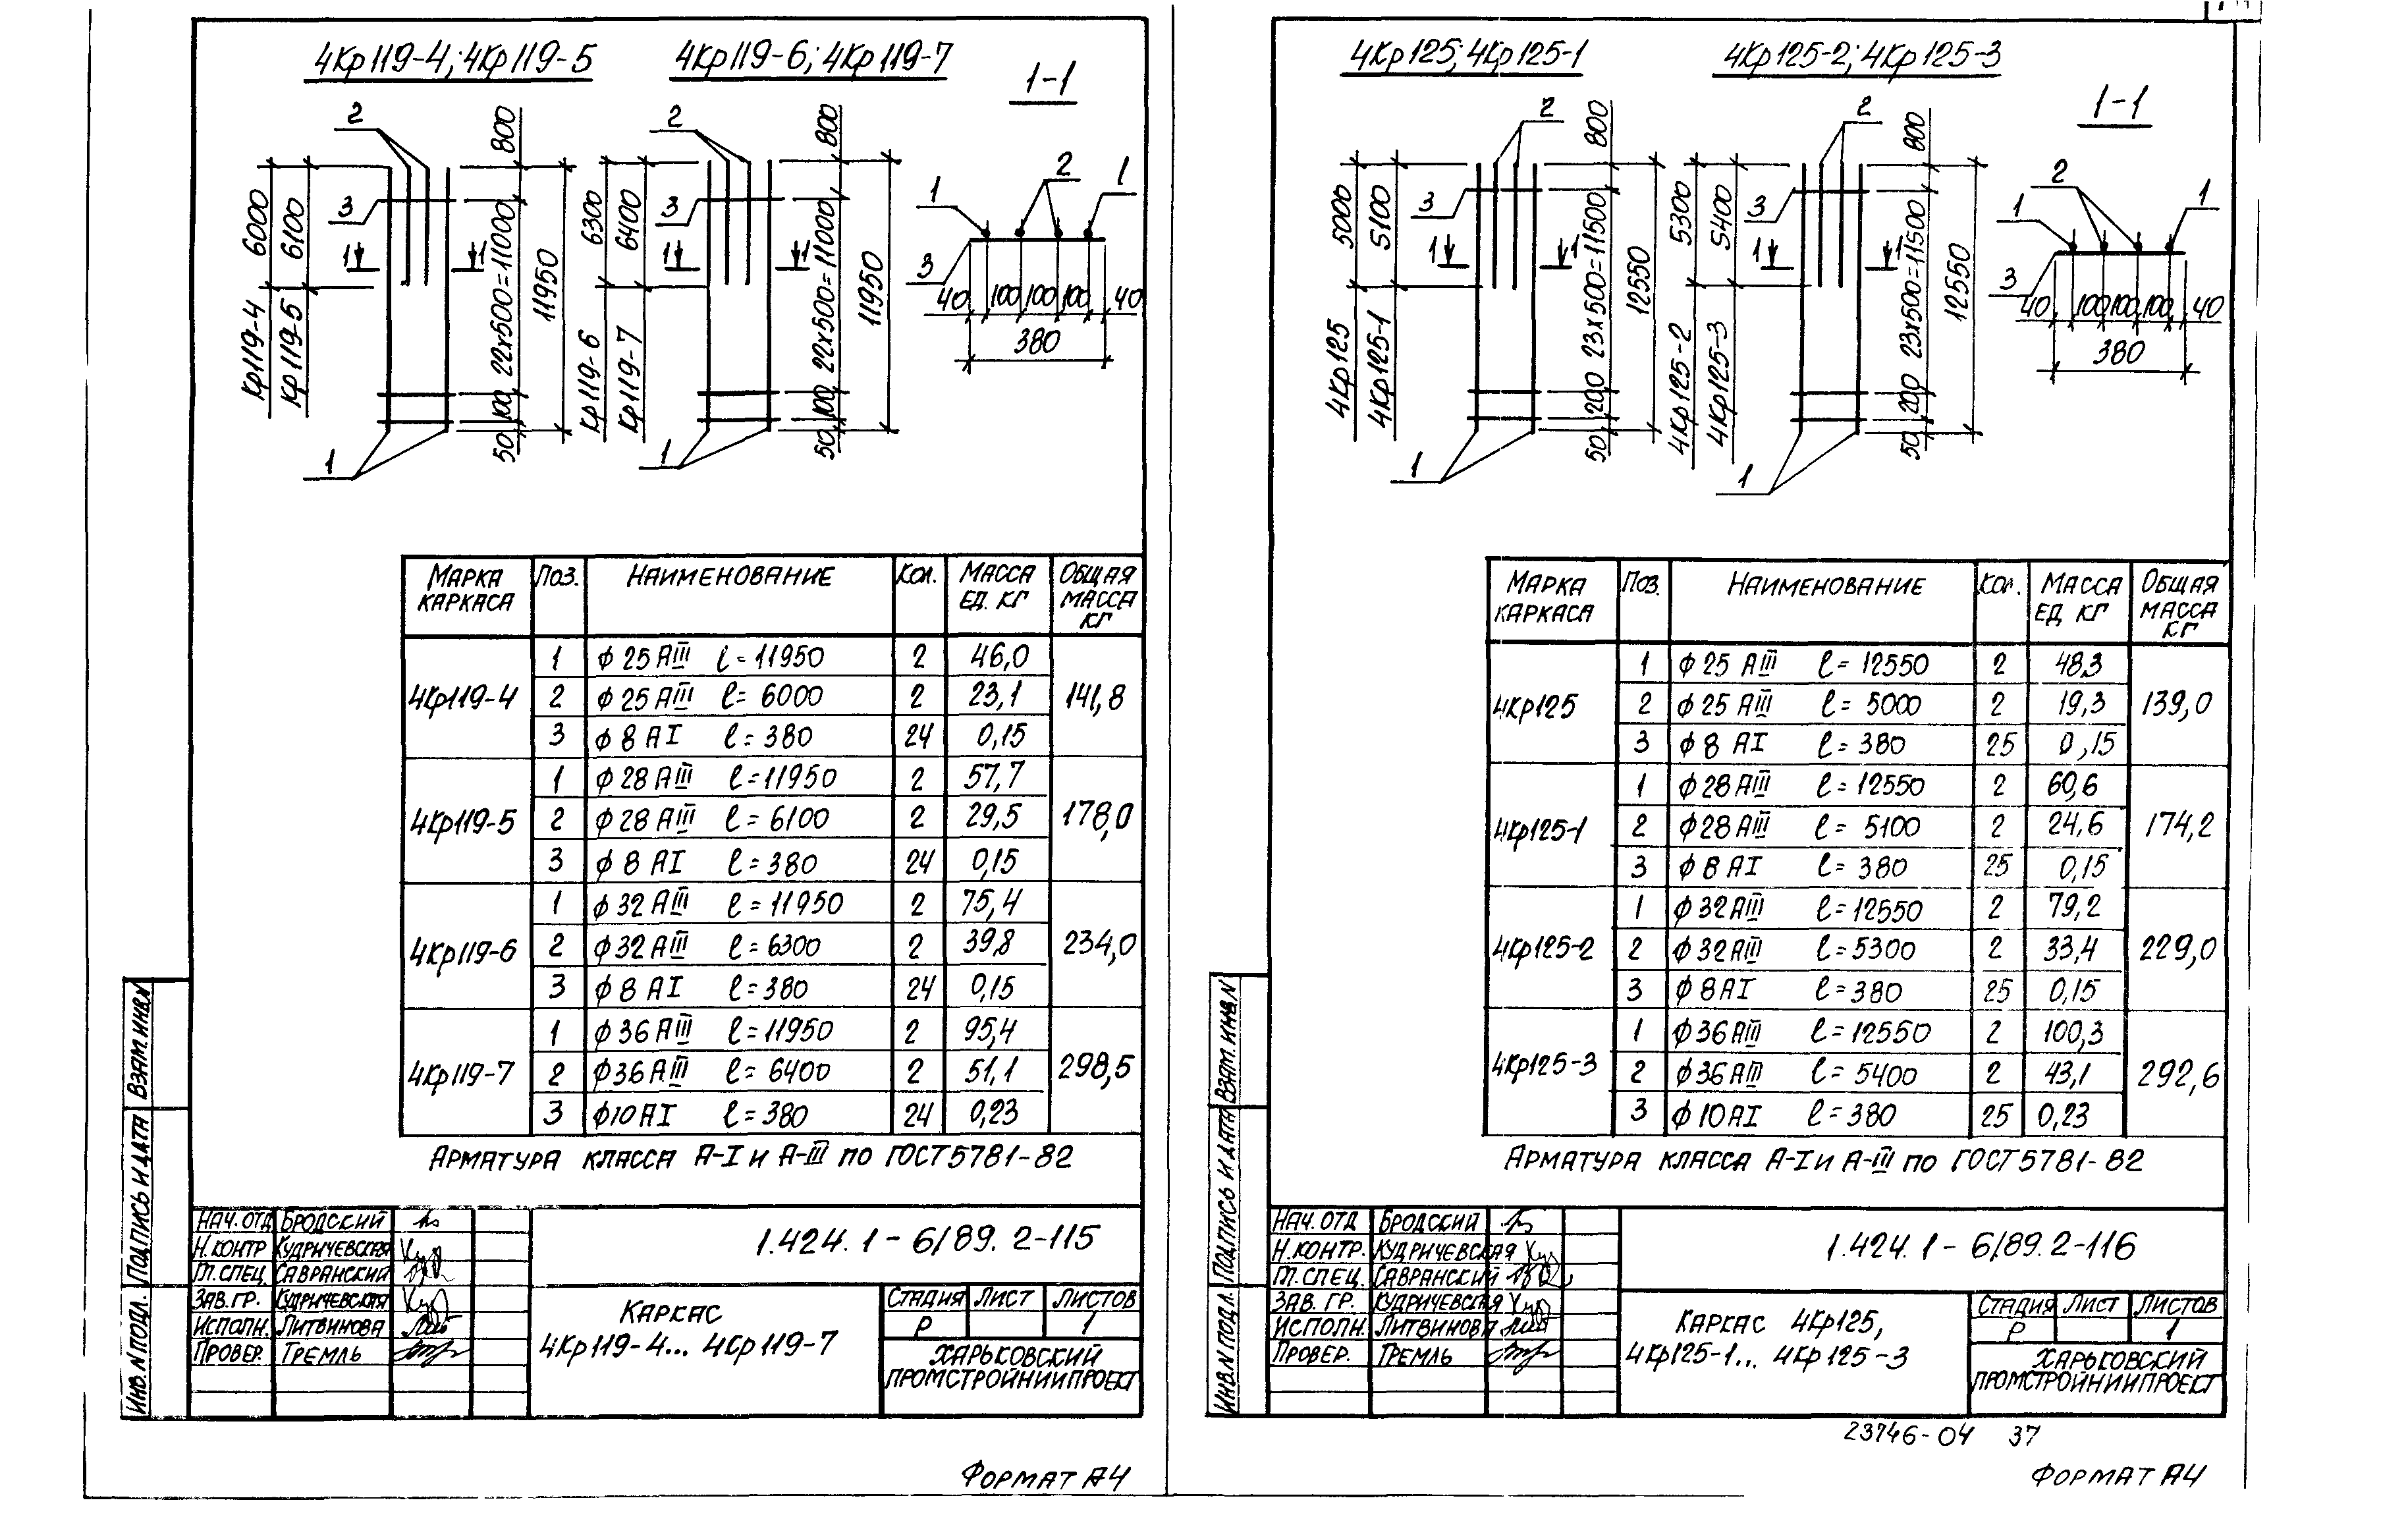 4Кр119-4; 4Кр119-5
4Кр119-6; 4Кр119-7
1-1
2
3
1
1
1
6000
6100
Кр119-4
Кр119-5
800
22х500=11000
100
50
11950
2
3
1
1
1
6300
6400
Кр119-6
Кр119-7
800
22х500=11000
100
50
11950
1
2
1
3
40 100 100 100 40
380
МАРКА КАРКАСА ПОЗ. НАИМЕНОВАНИЕ КОЛ. МАССА ЕД. КГ ОБЩАЯ МАССА КГ
4Кр119-4 1 ф 25 АIII ℓ=11950 2 46,0 141,8
2 ф 25 АIII ℓ= 6000 2 23,1
3 ф 8 АI ℓ=380 24 0,15
4Кр119-5 1 ф 28 АIII ℓ=11950 2 57,7 178,0
2 ф 28 АIII ℓ= 6100 2 29,5
3 ф 8 АI ℓ=380 24 0,15
4Кр119-6 1 ф 32 АIII ℓ=11950 2 75,4 234,0
2 ф 32 АIII ℓ=6300 2 39,8
3 ф 8 АI ℓ=380 24 0,15
4Кр119-7 1 ф 36 АIII ℓ=11950 2 95,4 298,5
2 ф 36 АIII ℓ= 6400 2 51,1
3 ф10 АI ℓ=380 24 0,23
АРМАТУРА КЛАССА А-I и А-III ПО ГОСТ 5781-82
ВЗАМ. ИНВ.N
ПОДПИСЬ И ДАТА
ИНВ. N ПОДЛ.
НАЧ. ОТД БРОДСКИЙ
Н.КОНТР КУДРИЧЕВСКАЯ
ГЛ. СПЕЦ. САВРАНСКИЙ
ЗАВ. ГР. КУДРИЧЕВСКАЯ
ИСПОЛН. ЛИТВИНОВА
ПРОВЕР. ТРЕМЛЬ
1.424.1 - 6/89. 2-115
КАРКАС
4Кр119-4... 4Кр119-7
СТАДИЯ ЛИСТ ЛИСТОВ
Р 1
ХАРЬКОВСКИЙ
ПРОМСТРОЙНИИПРОЕКТ
ФОРМАТ А4
4Кр125; 4Кр125-1
4Кр125-2; 4Кр125-3
1-1
2
3
1
1
1
5000
5100
4Кр125
4Кр125-1
800
23х500=11500
200
50
12550
2
3
1
1
1
5300
5400
4Кр125-2
4Кр125-3
800
23х500=11500
200
50
12550
1
2
1
3
40 100 100 100 40
380
МАРКА КАРКАСА ПОЗ. НАИМЕНОВАНИЕ КОЛ. МАССА ЕД КГ ОБЩАЯ МАССА КГ
4Кр125 1 ф 25 АIII ℓ= 12550 2 48,3 139,0
2 ф 25 АIII ℓ= 5000 2 19,3
3 ф 8 АI ℓ= 380 25 0,15
4Кр125-1 1 ф 28 АIII ℓ= 12550 2 60,6 174,2
2 ф 28 АIII ℓ= 5100 2 24,6
3 ф 8 АI ℓ= 380 25 0,15
4Кр125-2 1 ф 32 АIII ℓ=12550 2 79,2 229,0
2 ф 32 АIII ℓ=5300 2 33,4
3 ф 8 АI ℓ=380 25 0,15
4Кр125-3 1 ф 36 АIII ℓ=12550 2 100,3 292,6
2 ф 36 АIII ℓ=5400 2 43,1
3 ф 10 АI ℓ=380 25 0,23
АРМАТУРА КЛАССА А-I и А-III ПО ГОСТ 5781-82
ВЗАМ. ИНВ.N
ПОДПИСЬ И ДАТА
ИНВ.N ПОДЛ.
НАЧ. ОТД БРОДСКИЙ
Н.КОНТР. КУДРИЧЕВСКАЯ
ГЛ. СПЕЦ. САВРАНСКИЙ
ЗАВ. ГР. КУДРИЧЕВСКАЯ
ИСПОЛН. ЛИТВИНОВА
ПРОВЕР. ТРЕМЛЬ
1.424.1 - 6/89. 2-116
КАРКАС 4Кр125,
4Кр125-1... 4Кр125-3
СТАДИЯ ЛИСТ ЛИСТОВ
Р 1
ХАРЬКОВСКИЙ
ПРОМСТРОЙНИИПРОЕКТ
23746-04 37
ФОРМАТ А4